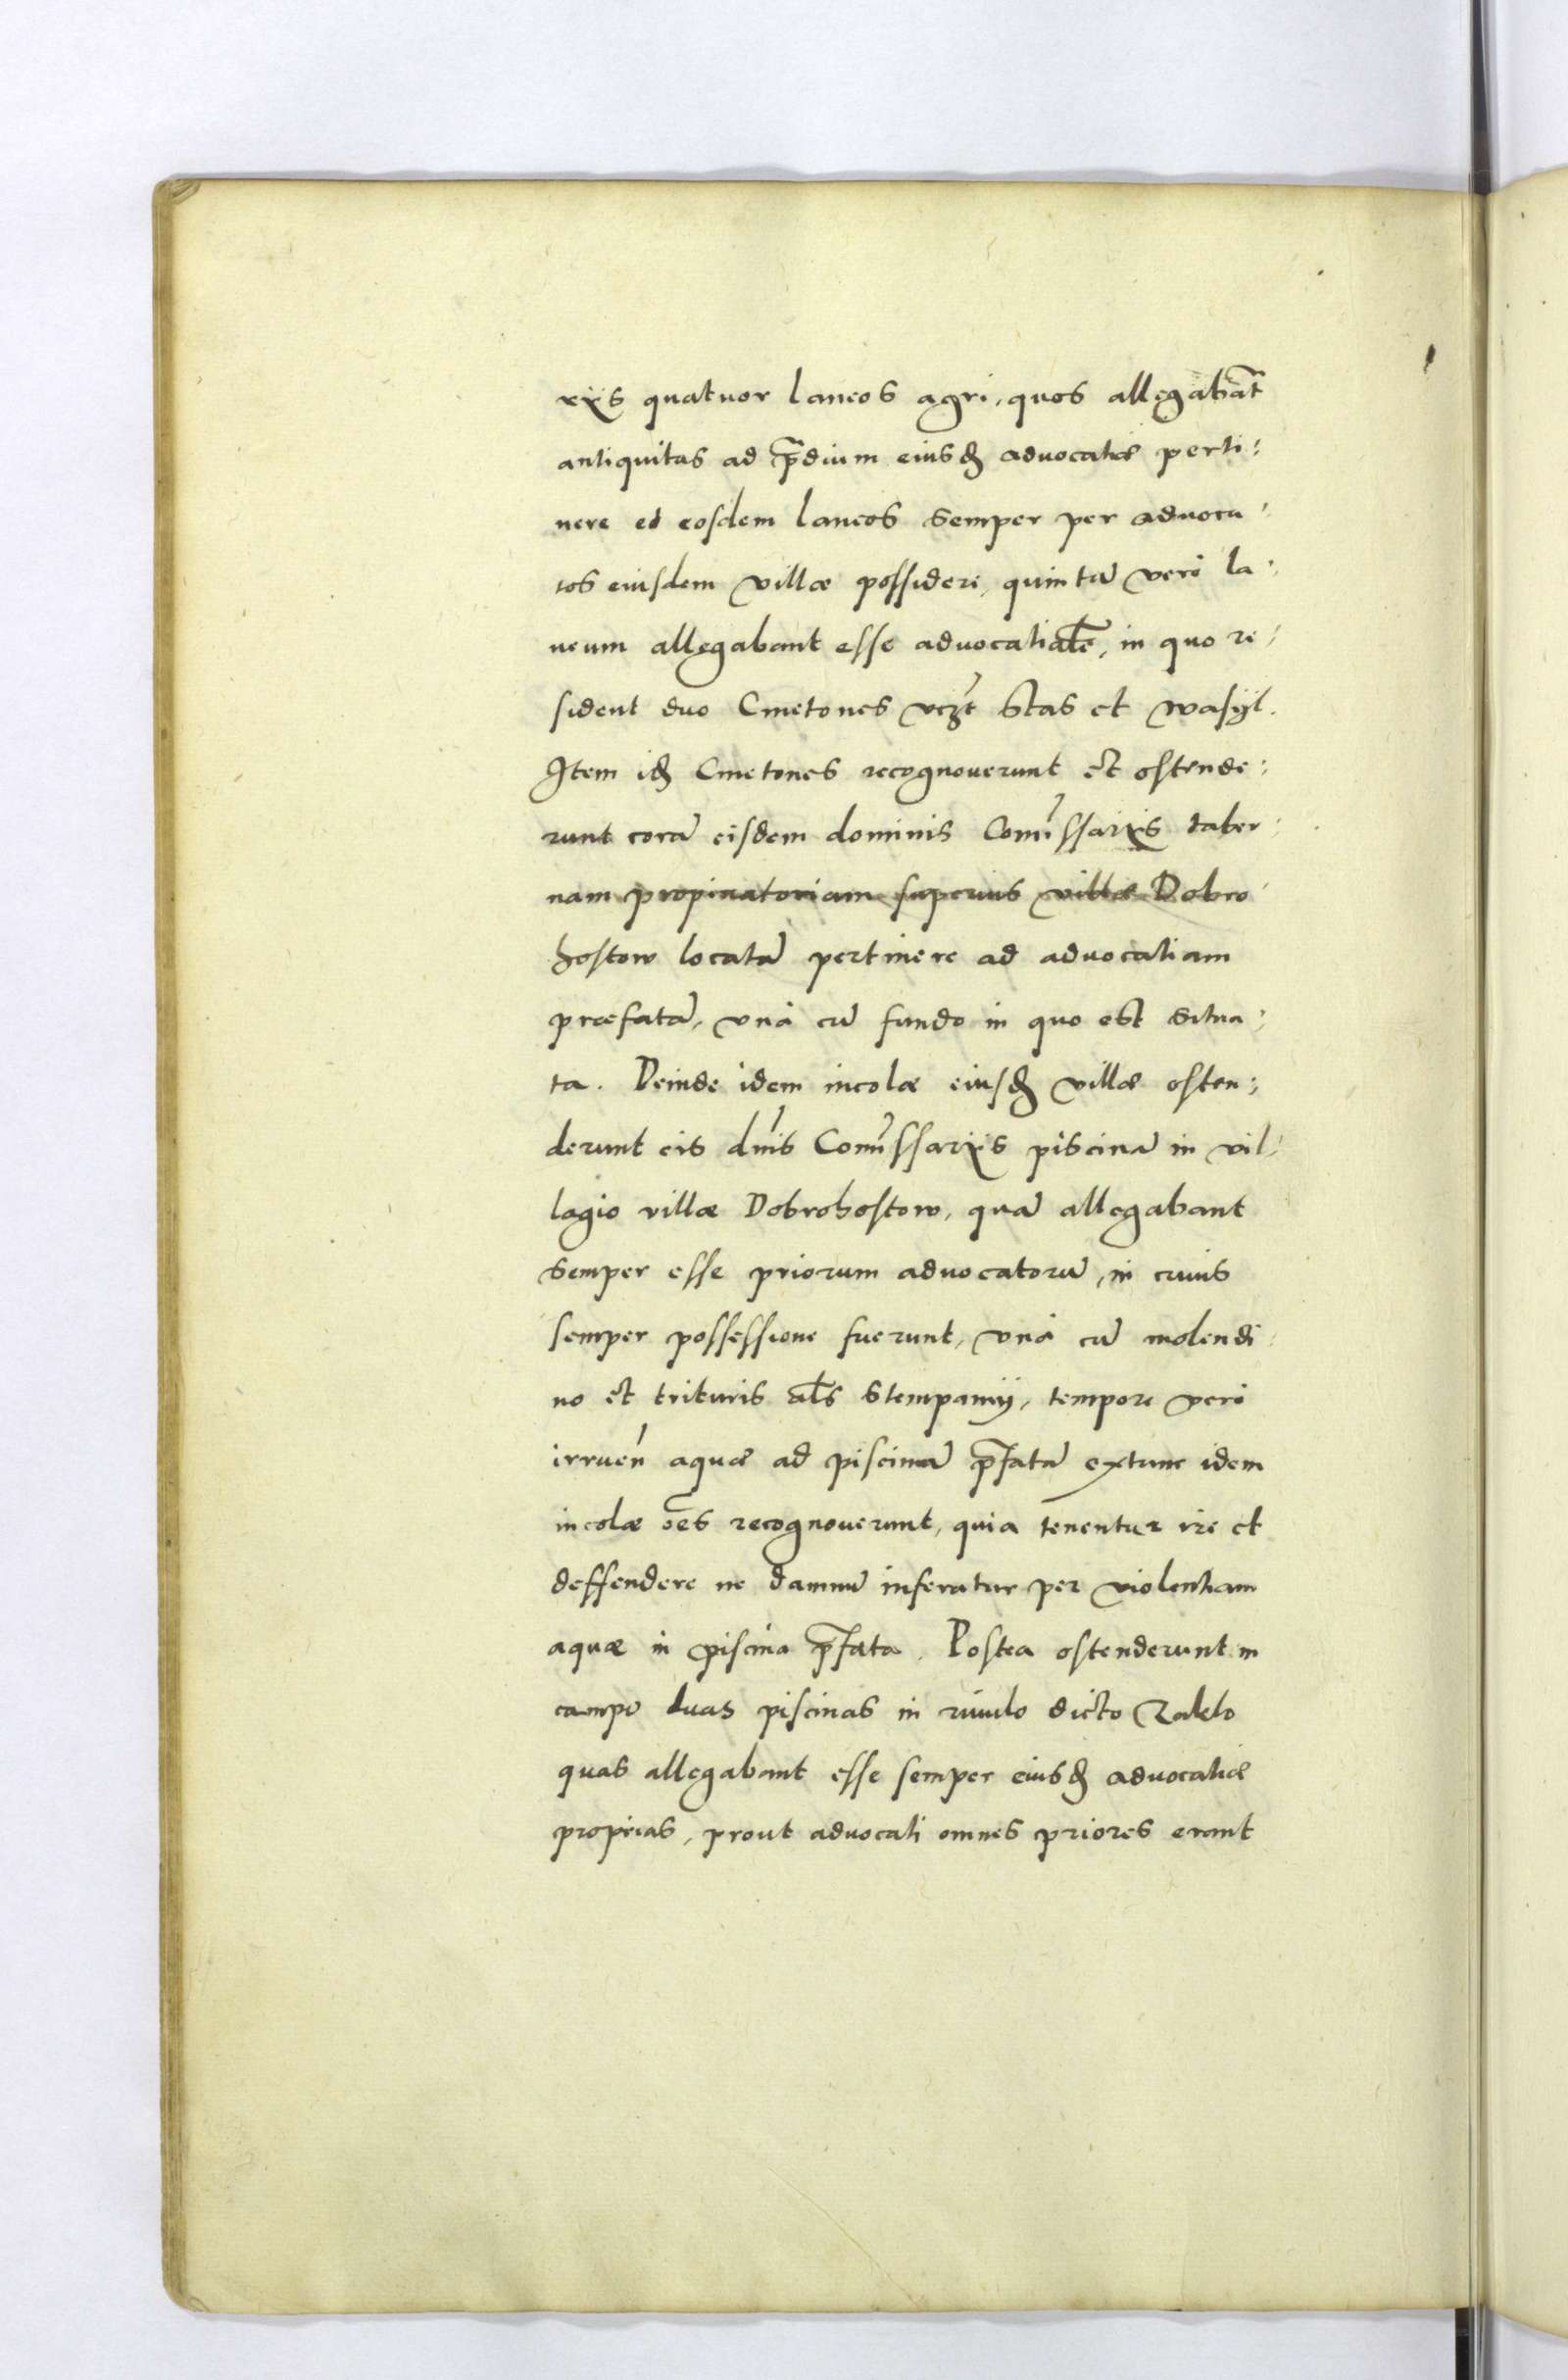 rijs quatuor laneos agri, quos allegabāt
antiquitus ad p̄dium eiusdē advocatiæ perti:
nere et eosdem laneos semper per advoca:
tos eiusdem villæ possideri, quintū vero la:
neum allegabant esse advocatialē, in quo re:
sident duo Cmetones vczt Stas et Wasyl.
Item idē Cmetones recognouerunt et ostende:
runt corā eisdem dominis Comissarijs taber:
nam propinatoriam superius villæ Dobro:
hostow locatā pertinere ad advocatiam
præfatā, vnà cū fundo in quo est situa:
ta. Deinde idem incolæ eiusdē villæ osten:
derunt eis dnis Comissarijs piscinā in vil:
lagio villæ Dobrohostow, quā allegabant
semper esse priorum advocatorū, in cuius
semper possessione fuerunt, vnà cū molendi:
no et trituris als Stempamij, tempore verò
irruen aquæ ad piscinā p̄fatā extunc idem
incolæ oēs recognouerunt, quia tenentur ire et
deffendere ne damnū inferatur per violentiam
aquæ in piscina p̄fata. Postea ostenderunt in
campo duas piscinas in riuulo dicto
quas allegabant esse semper eiusdē advocatiæ
proprias, prout advocati omnes priores erant